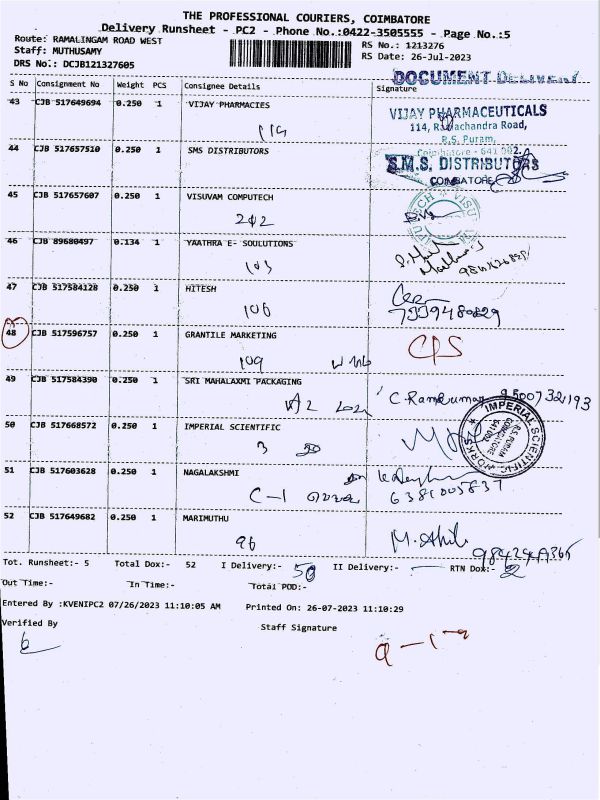 THE PROFESSIONAL COURIERS, COIMBATORE
Delivery Runsheet - PC2 - Phone No.:0422-3505555 - Page No.:5
Route: RAMALINGAM ROAD WEST
RS No.: 1213276
Staff: MUTHUSAMY
RS Date: 26-Jul-2023
DRS No.: DCJB121327605
DOCUMENT DELIVERY
S No Consignment No Weight PCS Consignee Details Signature
43 CJB 517649694 0.250 1 VIJAY PHARMACIES
VIJAY PHARMACEUTICALS
114, Ramachandra Road,
R.S. Puram,
Coimbatore - 641 002.
114
44 CJB 517657510 0.250 1 SMS DISTRIBUTORS
S.M.S. DISTRIBUTORS
COIMBATORE
45 CJB 517657607 0.250 1 VISUVAM COMPUTECH
202
46 CJB 89680497 0.134 1 YAATHRA E- SOULUTIONS
103
47 CJB 517584128 0.250 1 HITESH
106
7339480829
48 CJB 517596757 0.250 1 GRANTILE MARKETING
CPS
109
49 CJB 517584390 0.250 1 SRI MAHALAXMI PACKAGING
C. Ramkumar 9500732193
50 CJB 517668572 0.250 1 IMPERIAL SCIENTIFIC
IMPERIAL SCIENTIFIC WORKS
R.S. PURAM
COIMBATORE
641 002
3
51 CJB 517603628 0.250 1 NAGALAKSHMI
C-1
6381005837
52 CJB 517649682 0.250 1 MARIMUTHU
96
M. Akil
Tot. Runsheet:- 5 Total Dox:- 52 I Delivery:- 50 II Delivery:- RTN Dox:- 2
Out Time:- In Time:- Total POD:-
Entered By :KVENIPC2 07/26/2023 11:10:05 AM Printed On: 26-07-2023 11:10:29
Verified By Staff Signature